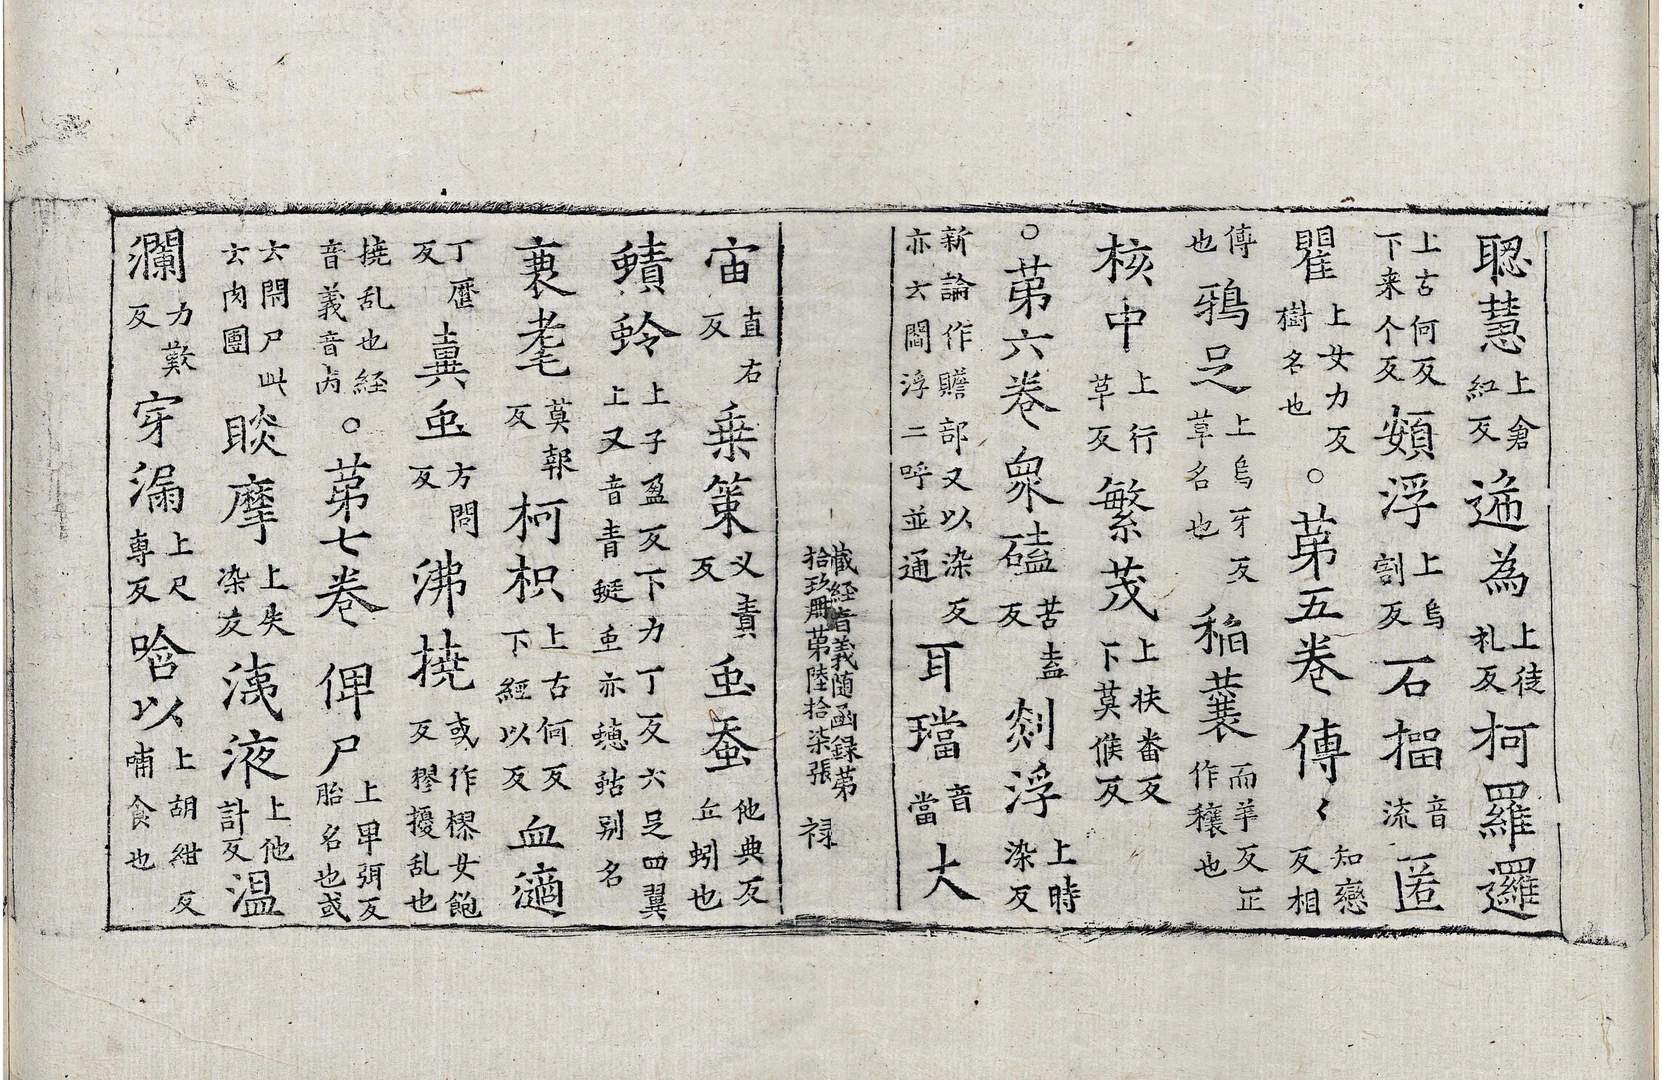 聦慧上倉紅反遞為上徒礼反柯羅邏
上古何反下来个反頞浮上烏割反石榴音流匿
瞿上女力反樹名也○苐五卷傳〻知戀反相
傳也鴉足上烏牙反草名也稲䕳而羊反正作穰也
核中上行草反繁茂上扶畨反下莫候反
○苐六卷衆磕苦盍反剡浮上時染反
新論作贍部又以染反亦云閻浮二呼並通耳璫音當大
藏経音義随函録苐
拾玖冊苐陸拾柒張 禄
宙直右反乗策乂責反䖝蚕他典反丘蚓也
蟦蛉上子盈反下力丁反六足四翼上又音青蜓䖝亦蟌𧉪别名
裹耄莫報反柯枳上古何反下經以反血適
丁歷反糞䖝方問反沸撓或作樛女飽反樛擾乱也
撓乱也経音義音㕯○苐七卷 俾尸上甲弭反胎名也或
云閇尸此云肉團睒摩上失染反洟液上他計反温
瀾力歎反穿漏上尺専反唅以上胡紺反哺食也